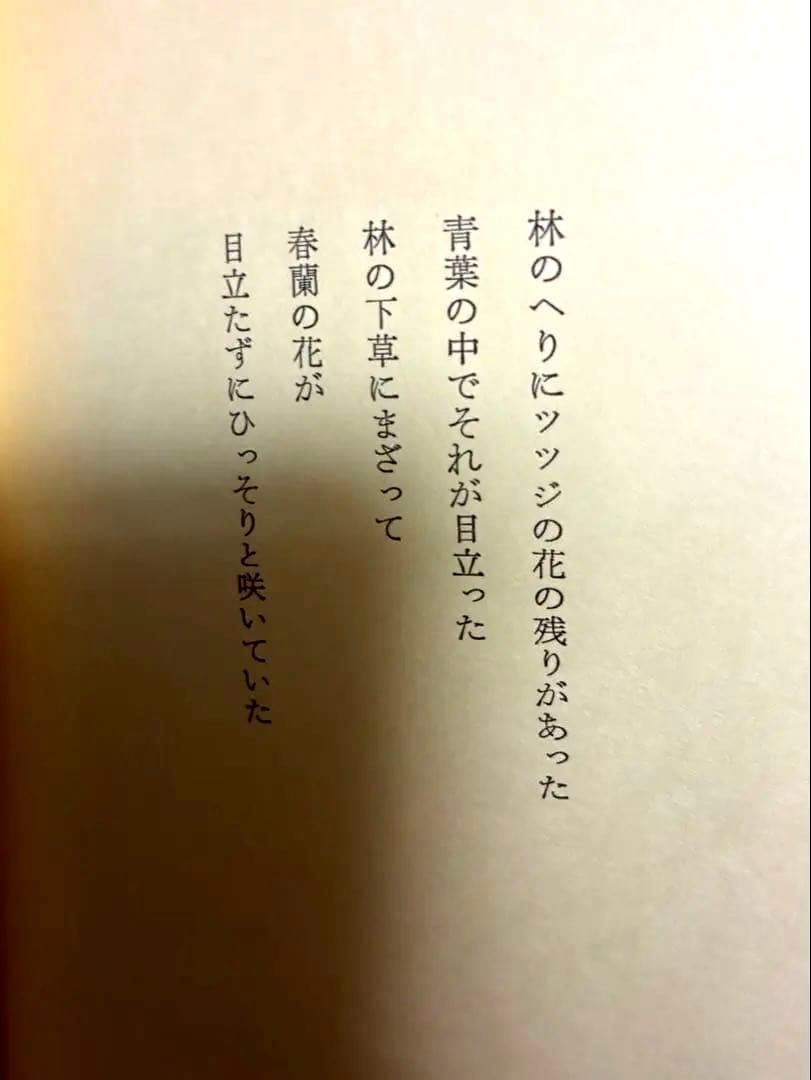 林のへりにツツジの花の残りがあった
青葉の中でそれが目立った
林の下草にまざって
春蘭の花が
目立たずにひっそりと咲いていた